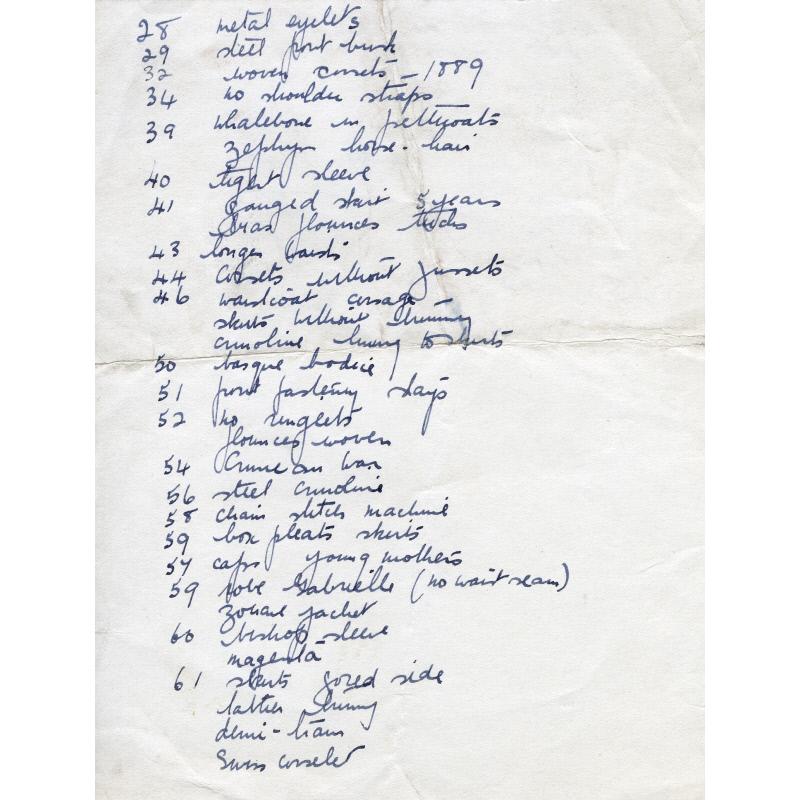 28 metal eyelets
29 steel front busk
32 woven corsets - 1889
34 no shoulder straps
39 whalebone in petticoats
zephyr horse-hair
40 tight sleeve
41 gauged skirt 5 years
flounces tucks
43 longer waists
44 corsets without gussets
46 waistcoat corsage
skirts without trimming
crinoline lining to skirts
50 basque bodice
51 front fastening stays
52 no ringlets
flounces woven
54 Crimean War
56 steel crinoline
58 chain stitch machine
59 box pleats skirts
57 caps young mothers
59 robe Gabrielle (no waist seam)
zouave jacket
60 bishop sleeve
magenta
61 skirts gored side
demi-train
Swiss corselet